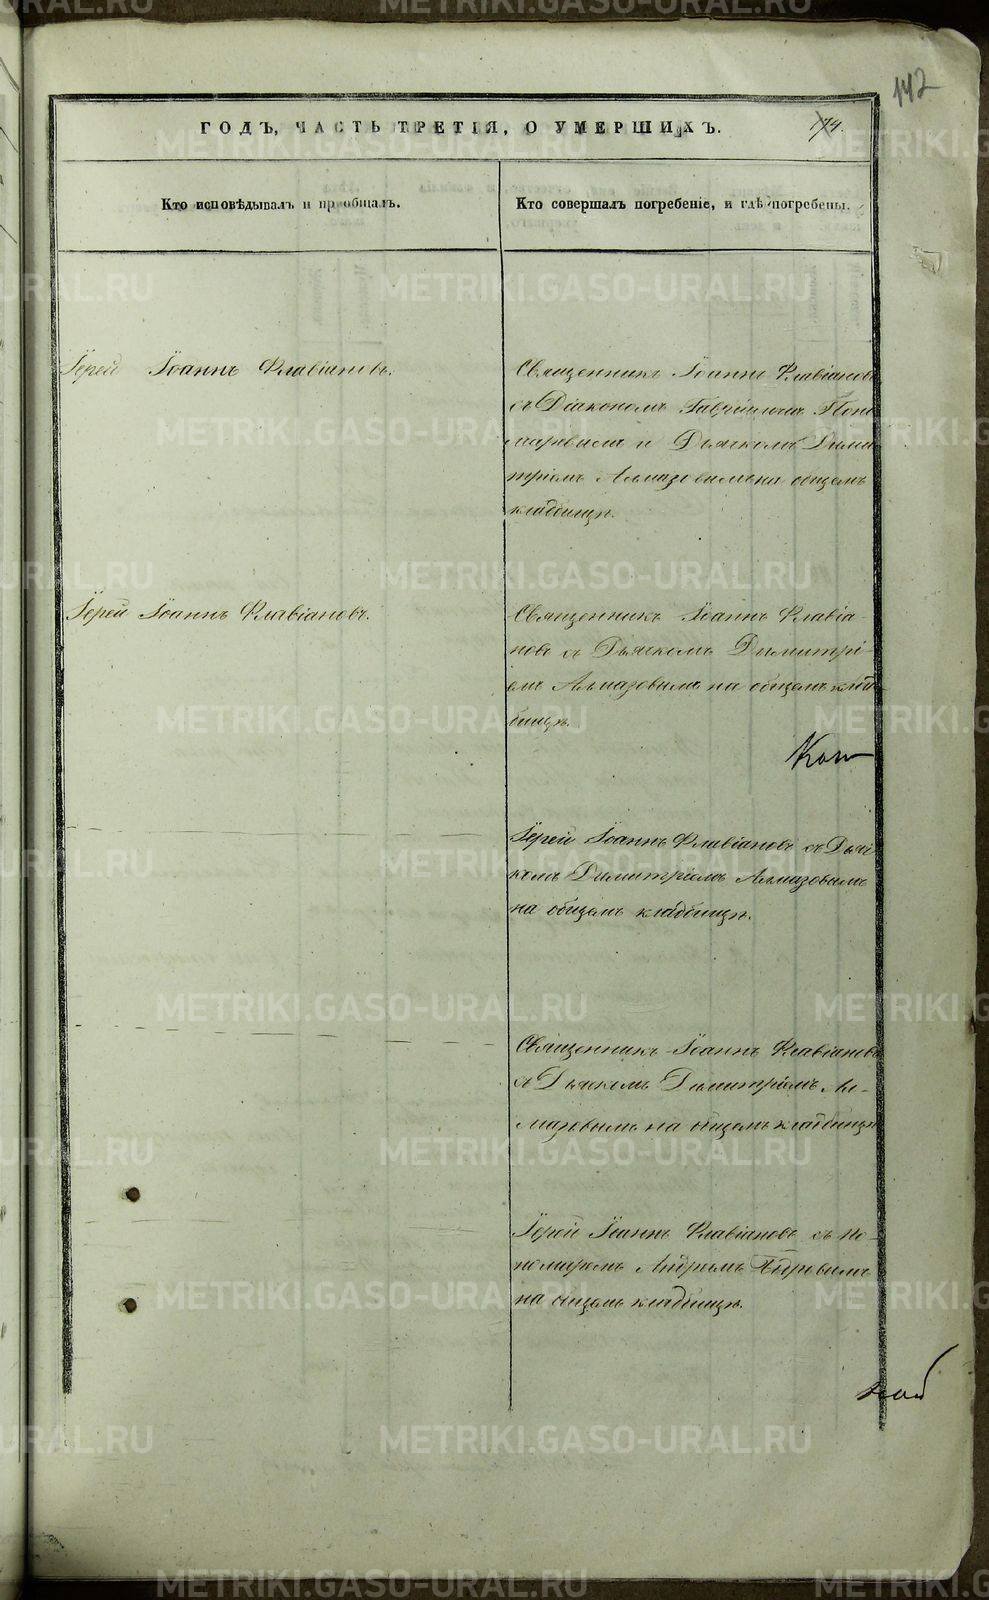 142
ГОДЪ, ЧАСТЬ ТРЕТІЯ, О УМЕРШИХЪ.
174.
Кто исповѣдывалъ и пріобщалъ.
Кто совершалъ погребеніе, и гдѣ погребены.
Іерей Іоаннъ Флавіановъ.
Священникъ Іоаннъ Флавіановъ
съ Діакономъ Поно
маревымъ и Дьячкомъ Дими
тріемъ Алмазовымъ на общемъ
кладбищѣ.
Іерей Іоаннъ Флавіановъ.
Священникъ Іоаннъ Флавіа
новъ съ Дьячкомъ Димитрі-
емъ Алмазовымъ на общемъ клад-
бищѣ.
Іерей Іоаннъ Флавіановъ съ Дьяч
комъ Димитріемъ Алмазовымъ
на общемъ кладбищѣ.
Священникъ Іоаннъ Флавіановъ
съ Дьячкомъ Димитріемъ Ал-
мазовымъ на общемъ кладбищѣ
Іерей Іоаннъ Флавіановъ съ По-
номаремъ Андреемъ
на общемъ кладбищѣ.
METRIKI.GASO-URAL.RU